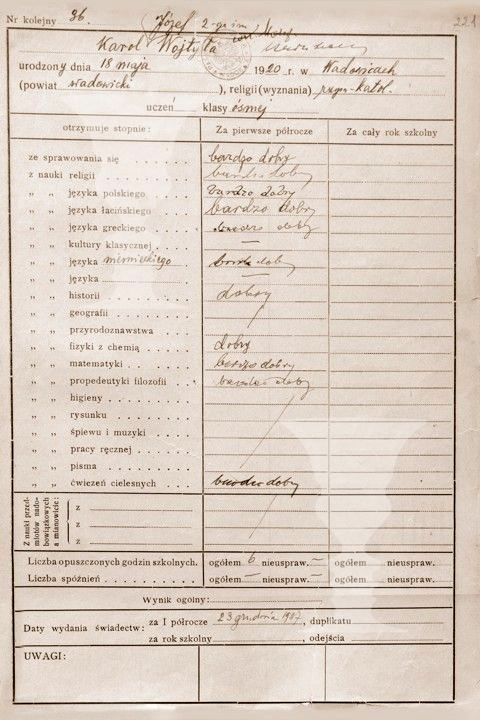 Nr kolejny 36. Józef 2-go im. 221
Karol Wojtyła
urodzony dnia 18 maja 1920 r. w Wadowicach
(powiat wadowicki ), religii (wyznania) rzym.-katol.
uczeń klasy ósmej
otrzymuje stopnie: Za pierwsze półrocze Za cały rok szkolny
ze sprawowania się bardzo dobry
z nauki religii bardzo dobry
„ „ języka polskiego bardzo dobry
„ „ języka łacińskiego bardzo dobry
„ „ języka greckiego bardzo dobry
„ „ kultury klasycznej —
„ „ języka niemieckiego bardzo dobry
„ „ języka —
„ „ historii dobry
„ „ geografii
„ „ przyrodoznawstwa
„ „ fizyki z chemią dobry
„ „ matematyki bardzo dobry
„ „ propedeutyki filozofii bardzo dobry
„ „ higieny
„ „ rysunku
„ „ śpiewu i muzyki
„ „ pracy ręcznej
„ „ pisma
„ „ ćwiczeń cielesnych bardzo dobry
Z nauki przed-
miotów nado-
bowiązkowych
a mianowicie:
z
z
z
Liczba opuszczonych godzin szkolnych. ogółem 6 nieuspraw. — ogółem nieuspraw.
Liczba spóźnień ogółem — nieuspraw. — ogółem nieuspraw.
Wynik ogólny:
Daty wydania świadectw: za I półrocze 23 grudnia 1937, duplikatu
za rok szkolny , odejścia
UWAGI: